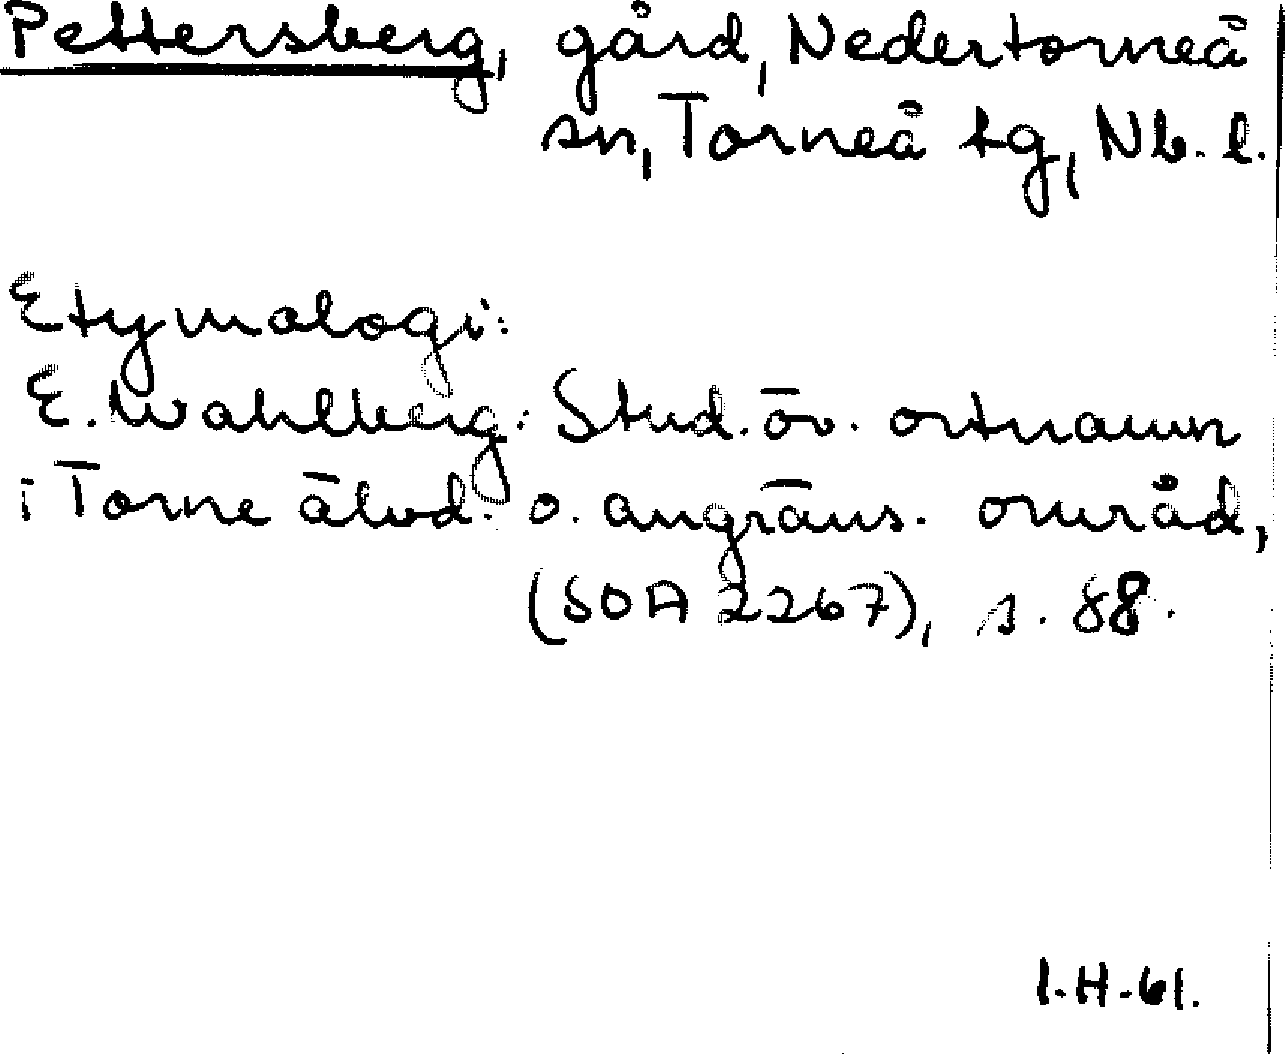 Pettersberg, gård, Nedertorneå
sn, Torneå tg, Nb. l.
Etymologi:
E. Wahlberg: Stud. öv. ortnamn
i Torne älvd. o. angräns. område,
(SOA 2267), s. 88.
I.H-61.